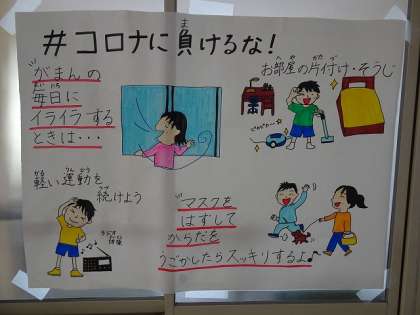 #コロナに負けるな!
がまんの
毎日に
イライラする
ときは・・・
お部屋の片付け・そうじ
軽い運動を
続けよう
ラジオ
体操
マスクを
はずして
からだを
うごかしたらスッキリするよ